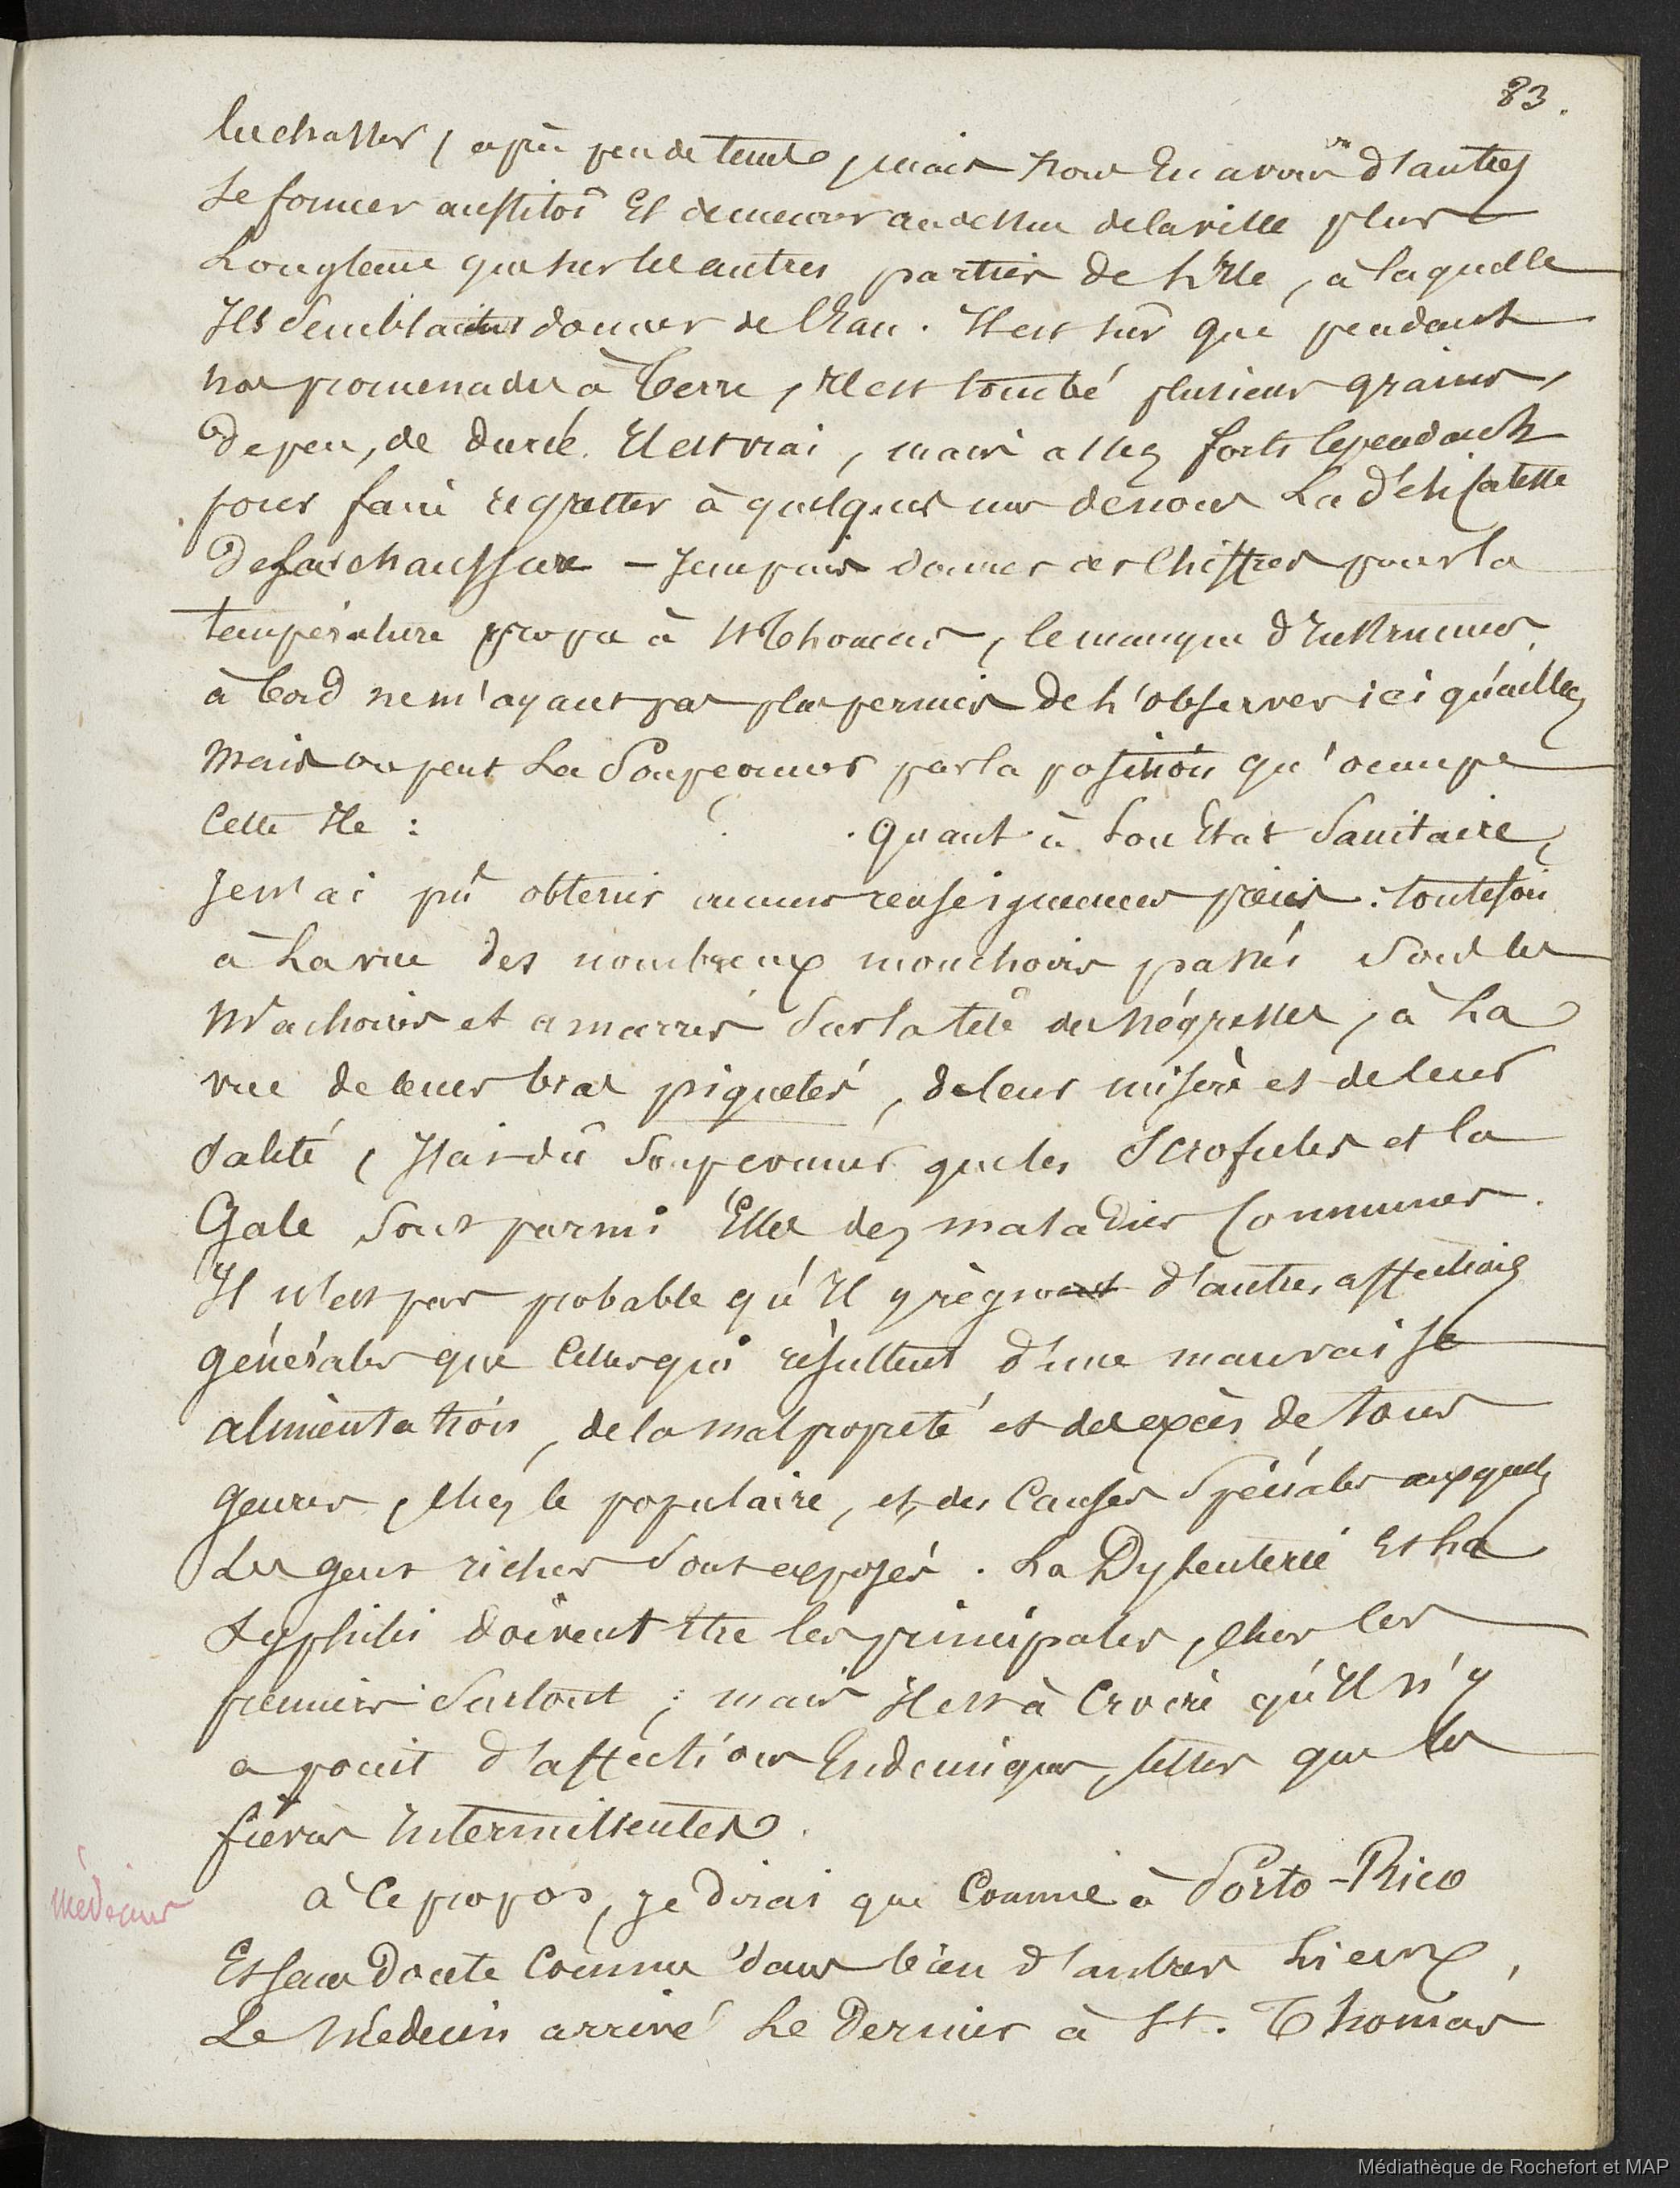 83.
les chasser, après peu de tems, mais nous en avons vu d'autres
se former aussitôt Et demeurer au dessus de la ville plus
Longtems que sur les autres parties de L'Ile, à laquelle
Ils semblaient donner de l'Eau. Il est sûr que pendant
nos promenades à terre, Il est tombé plusieurs grains,
de peu, de durée. Il est vrai, mais assez forts cependant
pour faire regretter à quelques uns de nous La délicatesse
de sa chaussure – Je ne puis donner des Chiffres pour la
température propre à St Thomas, le manque d'Instrumens
à bord ne m'ayant pas plus permis de L'observer ici qu'ailleurs
Mais on peut La Soupçonner par la position qu'occupe
Cette Ile : . Quant à Son Etat Sanitaire,
Je n'ai pû obtenir aucuns renseignemens précis : toutefois
à La vue des nombreux mouchoirs passés Sous les
Machoires et amarrés Sur la tête des négresses, à La
vue de leurs bras piquetés, de leur misère et de leur
Saleté, J'ai dû Soupçonner que les Scrofules et la
Gale Sont parmi Elles des maladies Communes.
Il n'est pas probable qu'Il y règne d'autres affections
générales que Celles qui résultent d'une mauvaise
alimentation, de la malpropreté et des excès de tous
genres, chez le populaire, et des Causes Spéciales auxquels
Les gens riches Sont exposés. La Dyssenterie Et La
Syphilis doivent être les principales, chez les
premiers Surtout ; mais Il est à Croire qu'Il n'y
a point d'affections Endémiques, telles que les
fièvres Intermittentes.
médecins
à Ce propos, Je dirai que Comme à Porto-Rico
Et sans Doute Comme dans bien d'autres Lieux,
Le Médecin arrivé Le Dernier à St. Thomas
Médiathèque de Rochefort et MAP